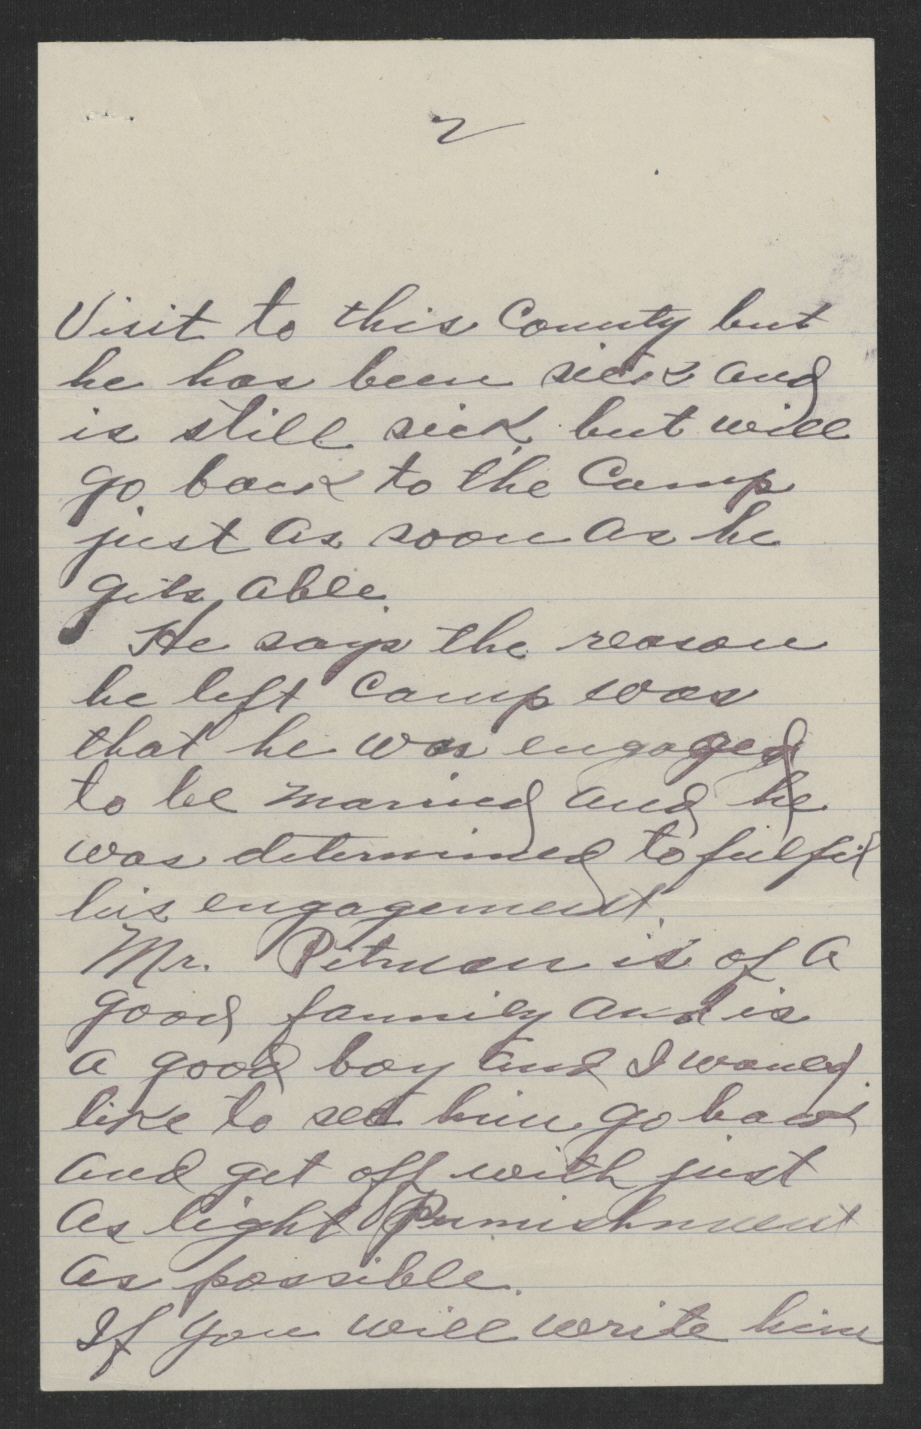 2
Visit to this County but
he has been sick and
is still sick but will
go back to the Camp
just as soon as he
gits able.
He says the reason
he left Camp was
that he was engaged
to be married and he
was determined to fulfil
his engagement.
Mr. Pitman is of a
good family and is
a good boy and I would
like to see him go back
and get off with just
as light Punishment
as possible.
If you will write him